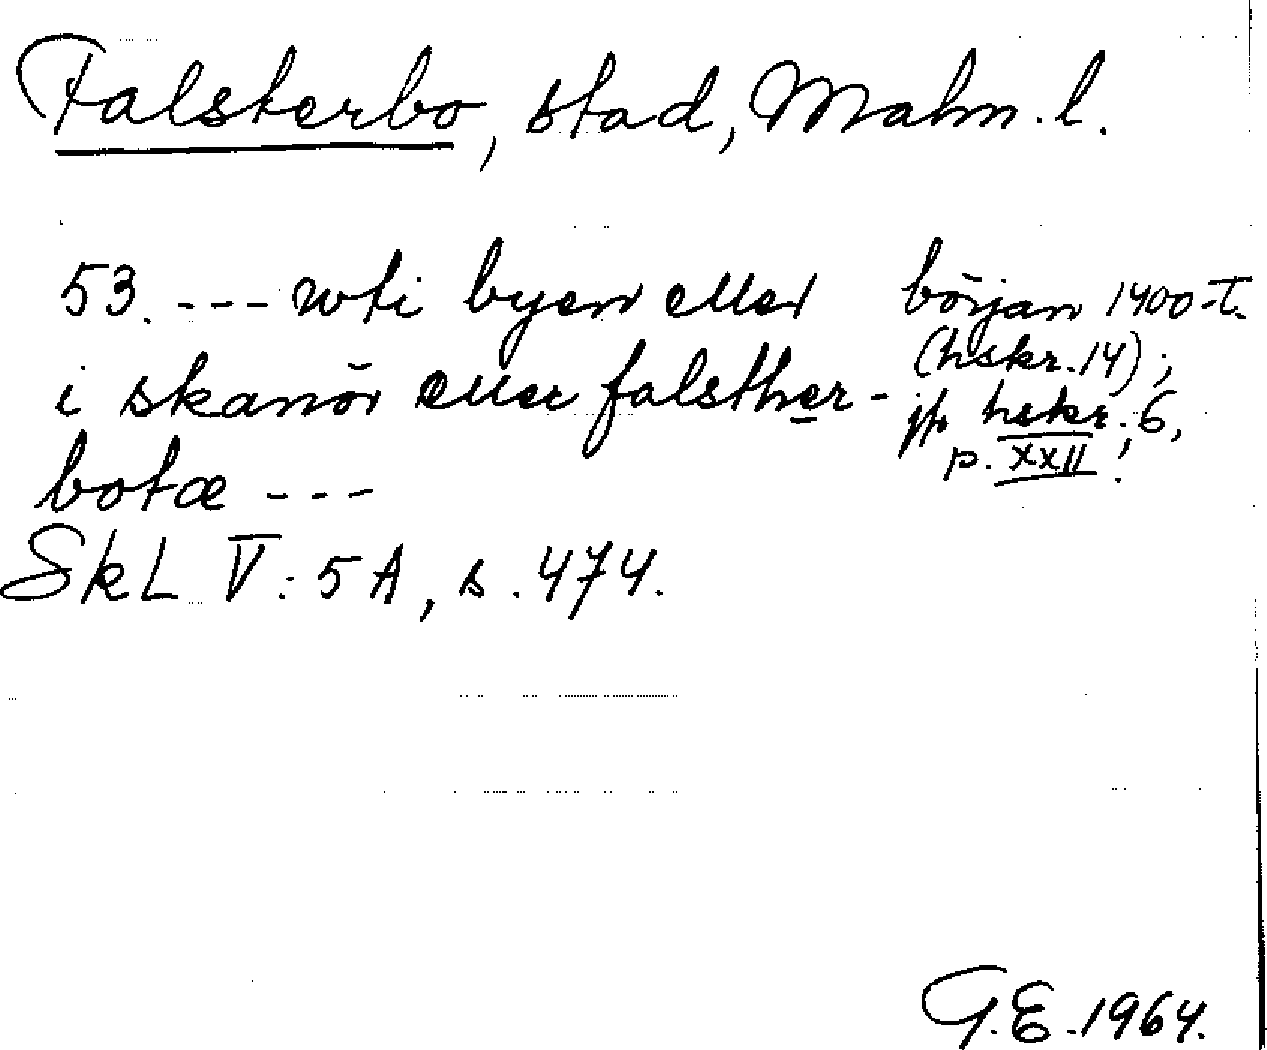 Falsterbo, stad, Malm. l.
53. --- wti byen eller
i skanör eller falsther-
botæ ---
SkL V: 5 A, s. 474.
början 1400-t.
(hskr. 14);
jfr hskr. 6,
p. XXII!
G.E. 1964.